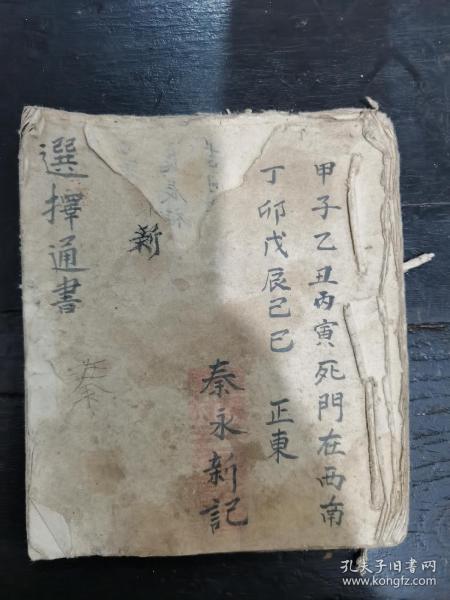 甲子乙丑丙寅死門在西南
丁卯戊辰己巳 正東
秦永新記
新
選擇通書
孔夫子旧书网
www.kongfz.com